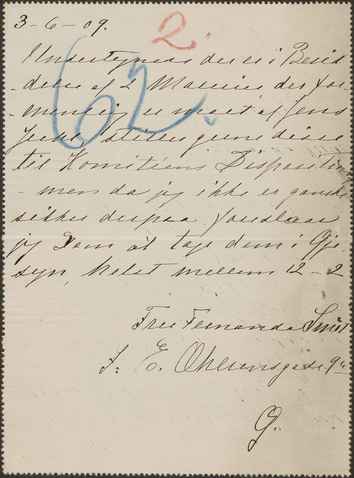 3-6-09.
2.
62.
Undertegnede der er i Besid-
delse af 2 Malerier, der for-
mentlig er malt af Jens
Juel stiller gerne disse
til Komitéens Disposition
- men da jeg ikke er ganske
sikker derpaa foreslaar
jeg Dem at tage dem i Øje-
syn, helst mellem 12-2
Fru Fernanda
J. E. Ohlsensgade 9
Ø.